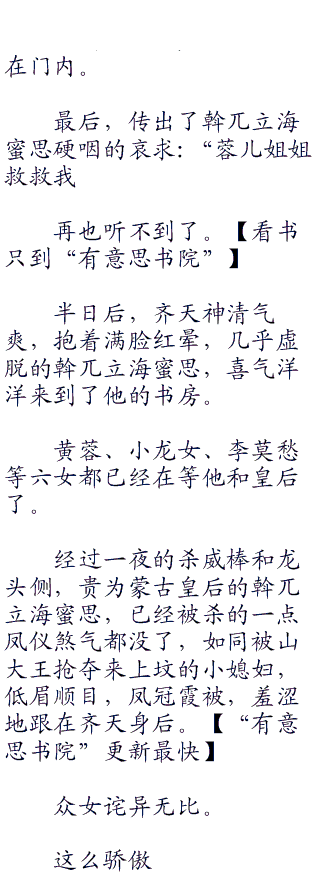 在门内。
最后，传出了斡兀立海
蜜思硬咽的哀求：“蓉儿姐姐
救救我
再也听不到了。【看书
只到“有意思书院”】
半日后，齐天神清气
爽，抱着满脸红晕，几乎虚
脱的斡兀立海蜜思，喜气洋
洋来到了他的书房。
黄蓉、小龙女、李莫愁
等六女都已经在等他和皇后
了。
经过一夜的杀威棒和龙
头侧，贵为蒙古皇后的斡兀
立海蜜思，已经被杀的一点
凤仪煞气都没了，如同被山
大王抢夺来上坟的小媳妇，
低眉顺目，凤冠霞被，羞涩
地跟在齐天身后。【“有意
思书院”更新最快】
众女诧异无比。
这么骄傲